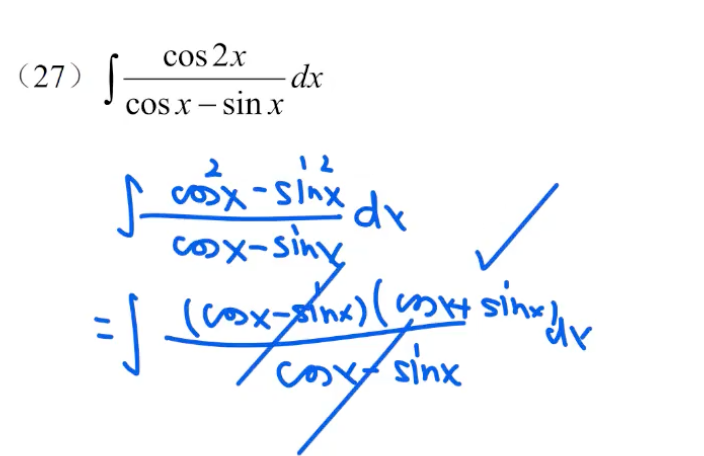 (27) ∫ cos 2x / (cos x − sin x) dx
∫ (cos²x − sin²x) / (cosx − sinx) dx
= ∫ (cosx − sinx)(cosx + sinx) / (cosx − sinx) dx